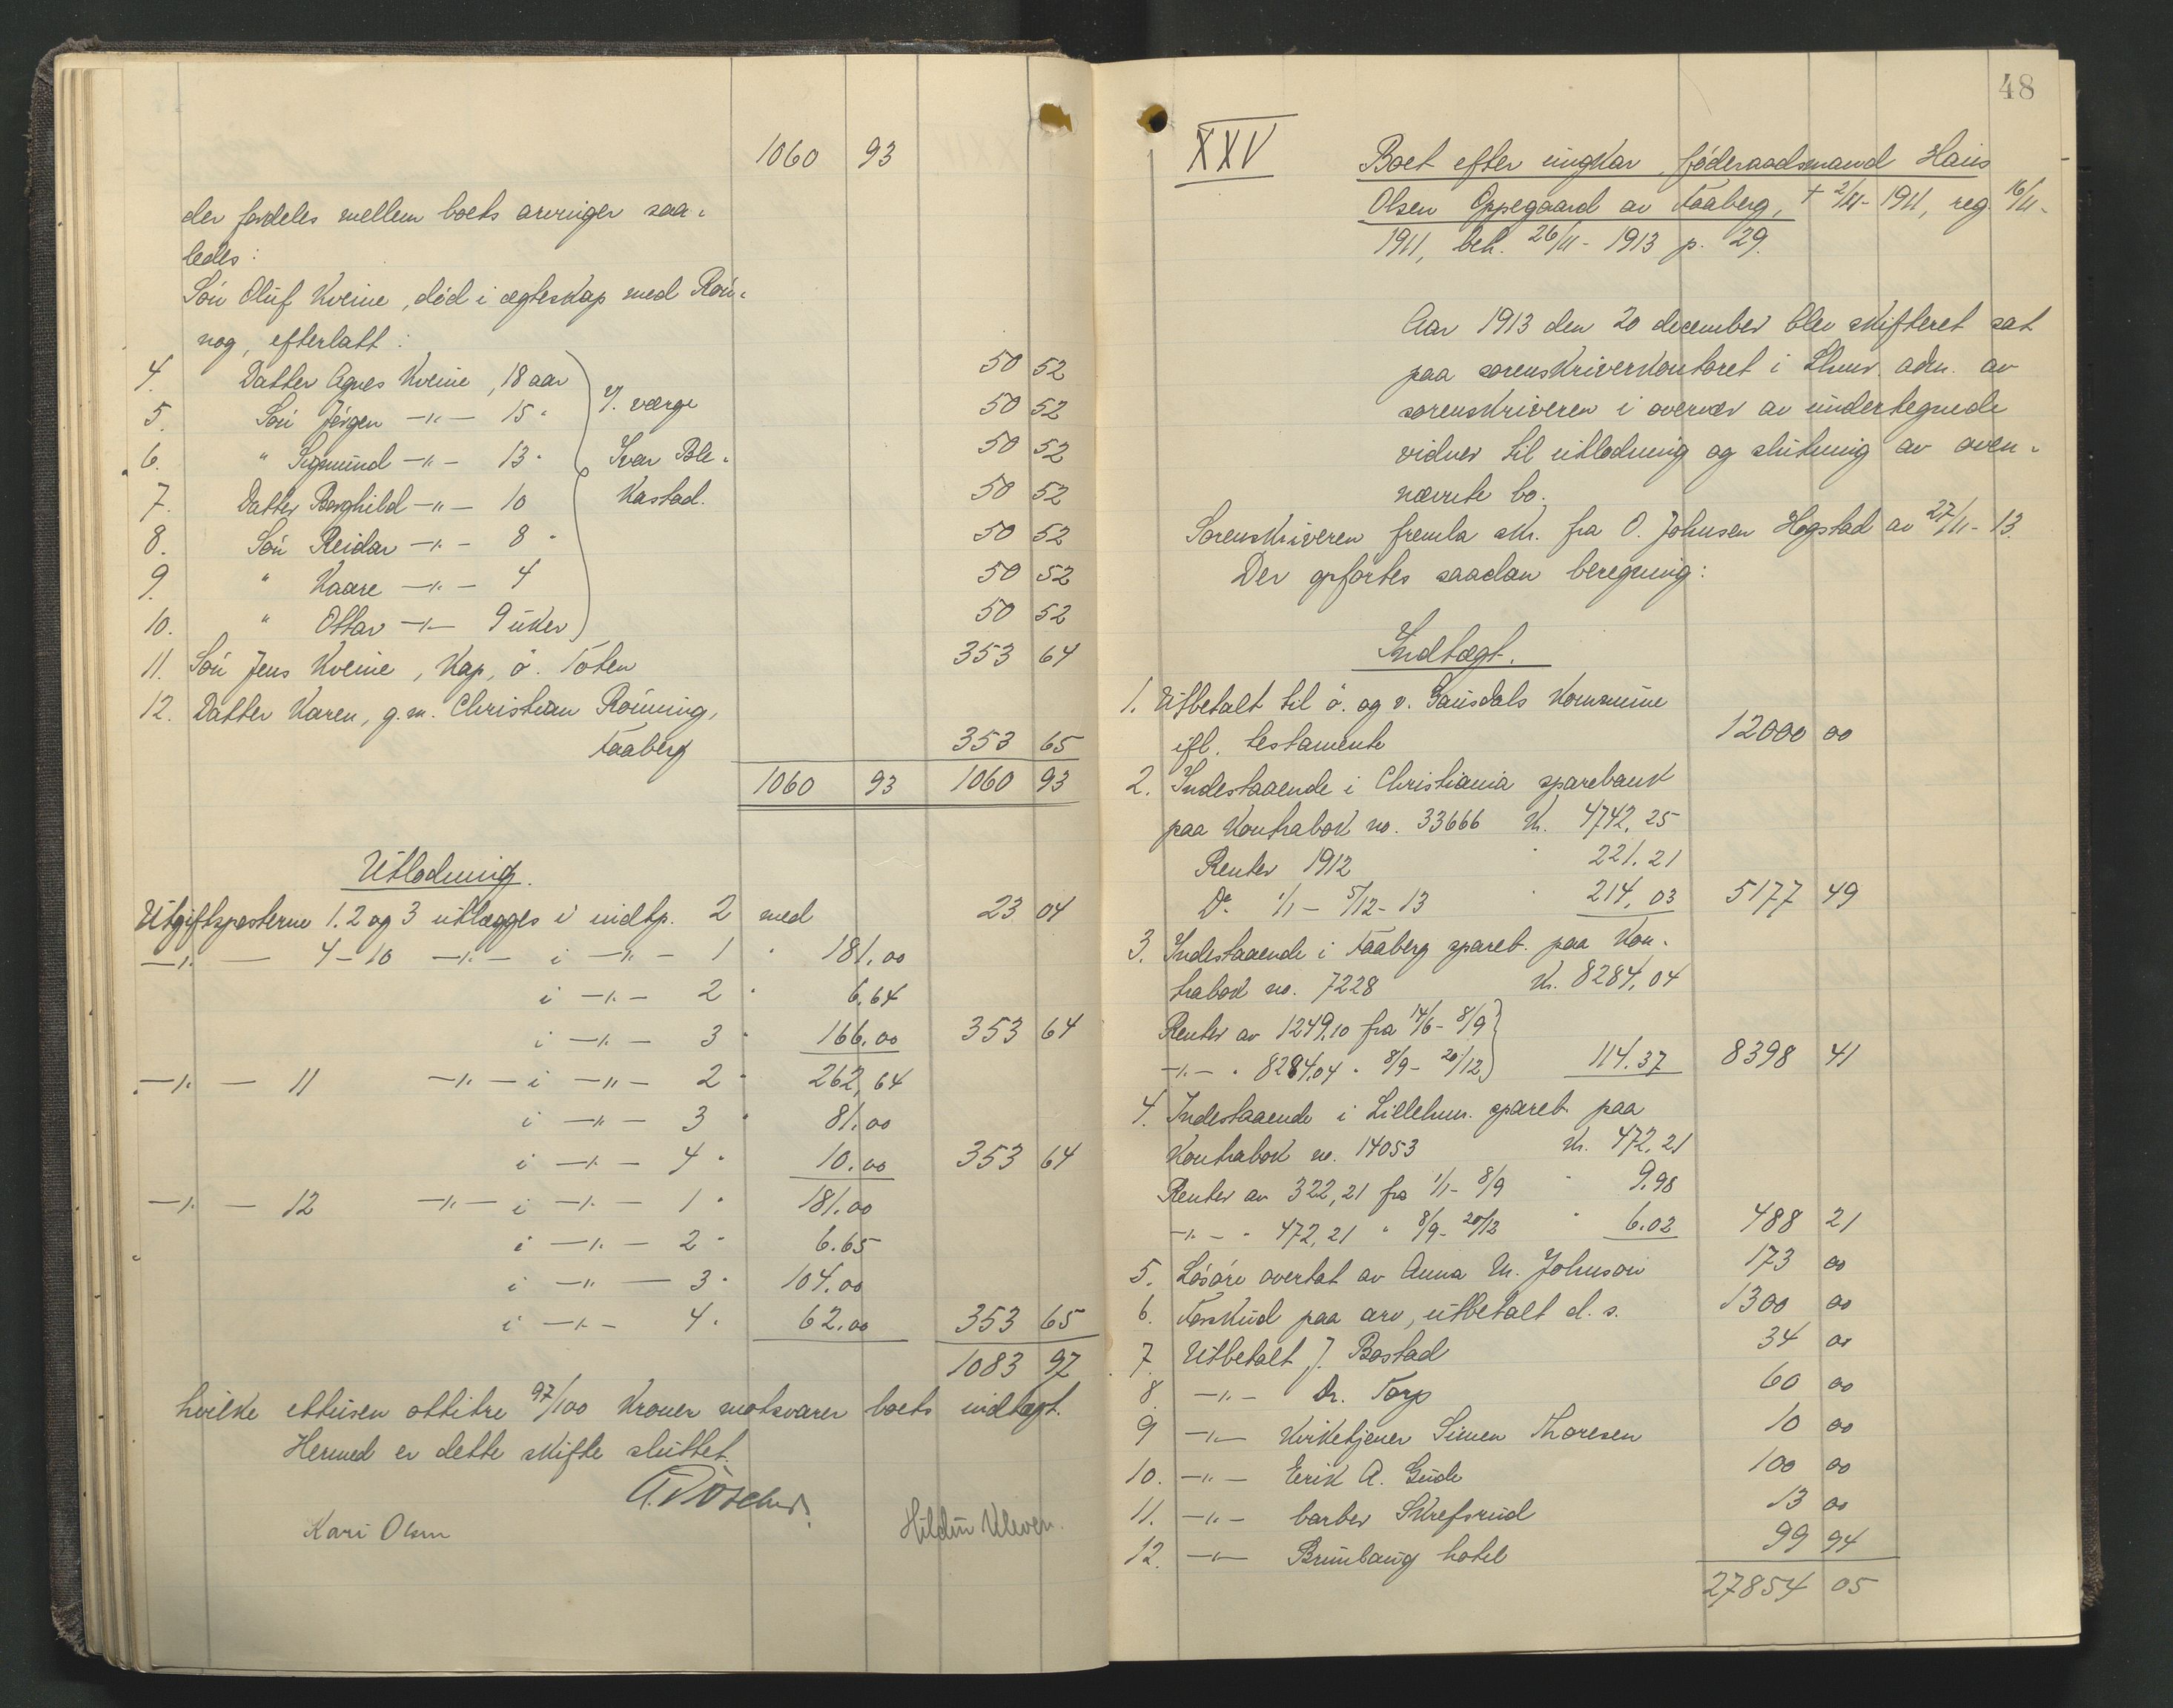 1060 93
der fordeles mellem boets arvinger saa-
ledes:
Søn Oluf Kveine, død i ægteskap med Røn-
nog, efterlatt:
4. Datter Agnes Kveine, 18 aar 50 52
5. Søn Jørgen -"- 15 " f. værge 50 52
6. " Sigmund -"- 13 " Ivar Ble- 50 52
7. Datter Borghild -"- 10 kastad. 50 52
8. Søn Reidar -"- 8 " 50 52
9. " Kaare -"- 4 50 52
10. " Ottar -"- 9 uker 50 52
11. Søn Jens Kveine, Kap, ø. Toten 353 64
12. Datter Karen, g.m. Christian Rønning,
Faaberg 353 65
1060 93 1060 93
Utlodning.
Utgiftsposterne 1.2 og 3 utlægges i indtp. 2 med 23 04
-"- - 4-10 -"- i -"- 1 " 181.00
i -"- 2 " 6.64
i -"- 3 " 166.00 353 64
-"- - 11 -"- i -"- 2 " 262,64
i -"- 3 " 81.00
i -"- 4 " 10.00 353 64
-"- - 12 -"- i -"- 1 " 181.00
i -"- 2 " 6.65
i -"- 3 " 104.00
i -"- 4 " 62.00 353 65
1083 97
hvilke ettusen ottitre 97/100 kroner motsvarer boets indtægt.
Hermed er dette skifte sluttet.
Kari Olsen Hildur Kleven.
48
XXV Boet efter ungkar, føderaadsmand Hans
Olsen Oppegaard av Faaberg, † 2/11-1911, reg. 16/11-
1911, beh. 26/11-1913 p. 29.
Aar 1913 den 20 december blev skifteret sat
paa sorenskriverkontoret i Lhmr. adm. av
sorenskriveren i overvær av undertegnede
vidner til utlodning og slutning av oven-
nævnte bo.
Sorenskriveren fremla skr. fra O. Johnsen Hogstad av 27/11-13.
Der opførtes saadan beregning:
Indtægt.
1. Utbetalt til ø. og v. Gausdals kommune
ifl. testamente 12000 00
2. Indestaaende i Christiania sparebank
paa kontrabok no. 33666 kr. 4742.25
Renter 1912 " 221.21
Do 1/1 - 5/12-13 " 214.03 5177 49
3. Indestaaende i Faaberg spareb. paa kon-
trabok no. 7228 kr. 8284,04
Renter av 1249,10 fra 14/6 - 8/9
-"- " 8284.04 " 8/9 - 20/12 114.37 8398 41
4. Indestaaende i Lillehm. spareb. paa
kontrabok no. 14053 kr. 472,21
Renter av 322,21 fra 1/1 - 8/9 " 9.98
-"- " 472,21 " 8/9 - 20/12 " 6.02 488 21
5. Løsøre overtat av Anna M. Johnson 173 00
6. Forskud paa arv, utbetalt d. s. 1300 00
7. Utbetalt J. Bostad 34 00
8 -"- Dr. Torp 60 00
9 -"- Kirketjener Simen Thoresen 10 00
10. -"- Eerik A. Gude 100 00
11. -"- barber Skrefsrud 13 00
12. -"- Brunlaug hotel 99 94
27854 05